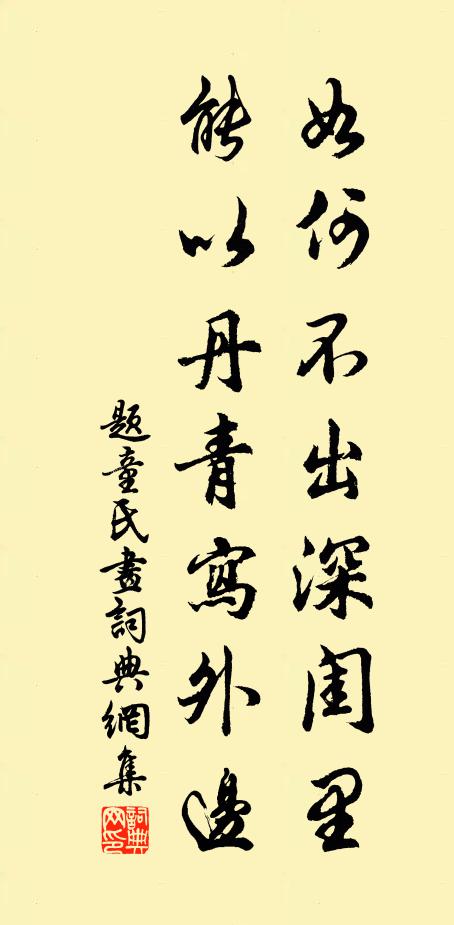 如何不出深闺里
能以丹青寫外邊
題童氏畫詞典網集
詞典网印